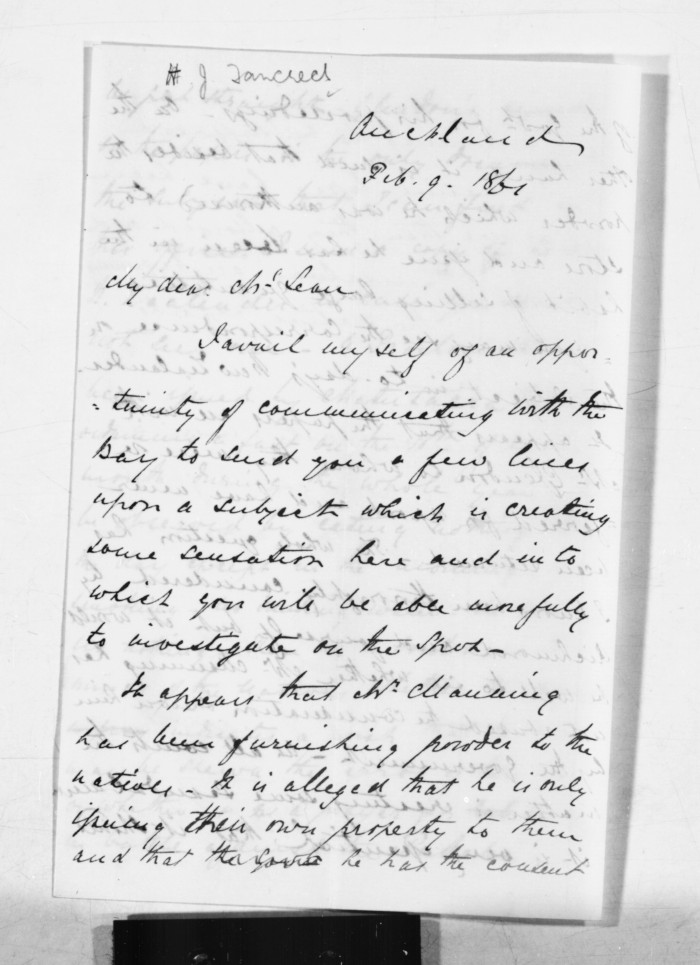 H J Tancred
Auckland
Feb. 9. 1861
My dear McLean
I avail myself of an oppor-
-tunity of communicating with the
Bay to send you a few lines
upon a subject which is creating
some sensation here and into
which you will be able more fully
to investigate on the Spot—
It appears that Mr. Manning
has been furnishing powder to the
natives - It is alleged that he is only
issuing their own property to them
and that the he has the consent